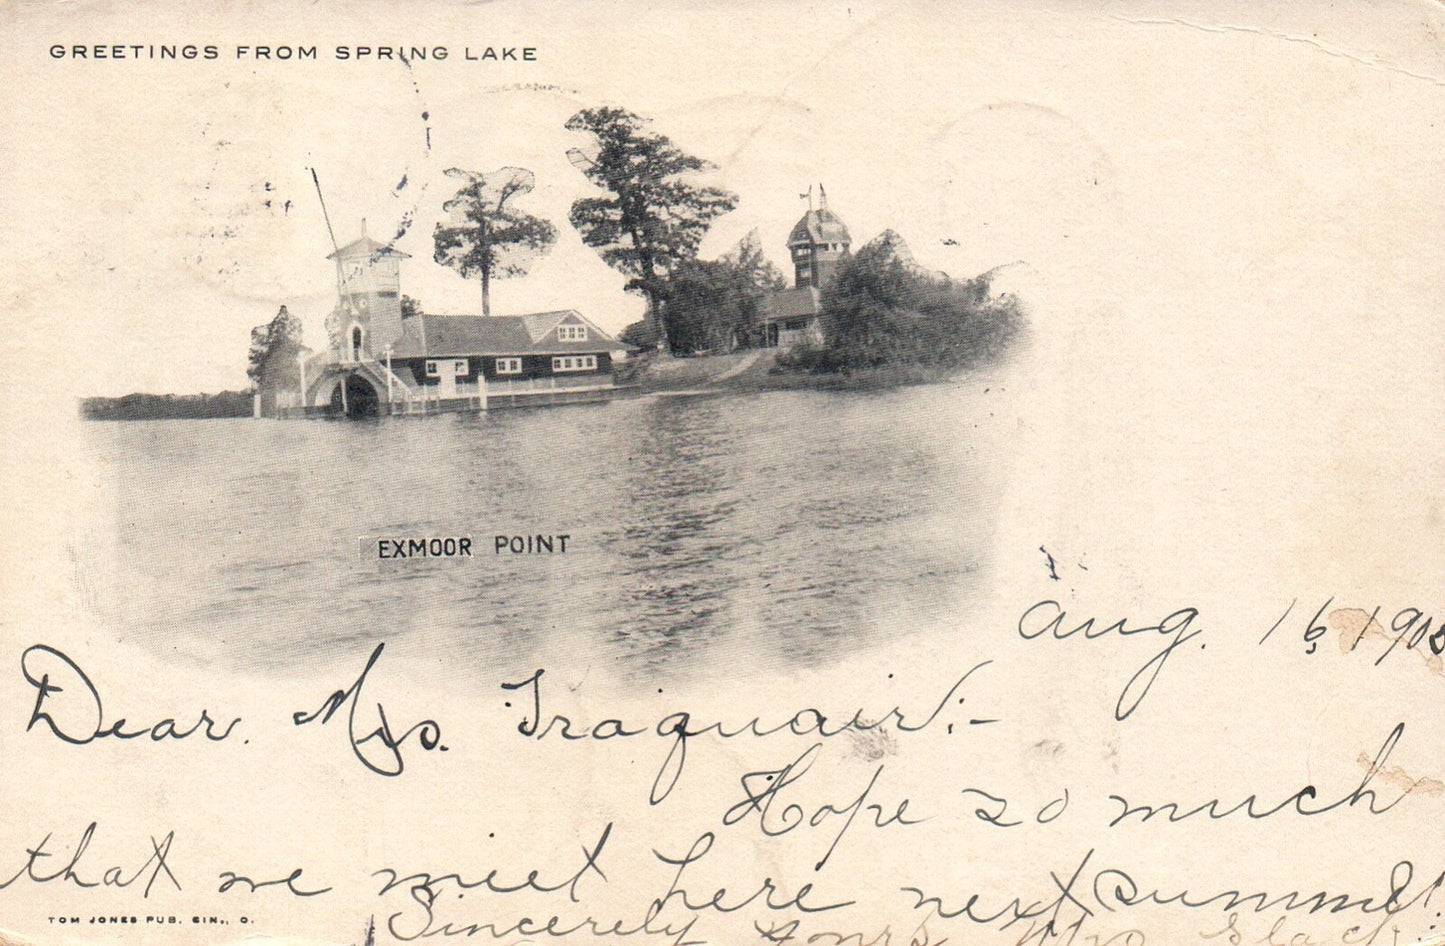 GREETINGS FROM SPRING LAKE
EXMOOR POINT
Aug. 16, 1905
Dear Mrs. Traquair:-
Hope so much
that we meet here next summer.
Sincerely yours Mrs
TOM JONES PUB. CIN., O.